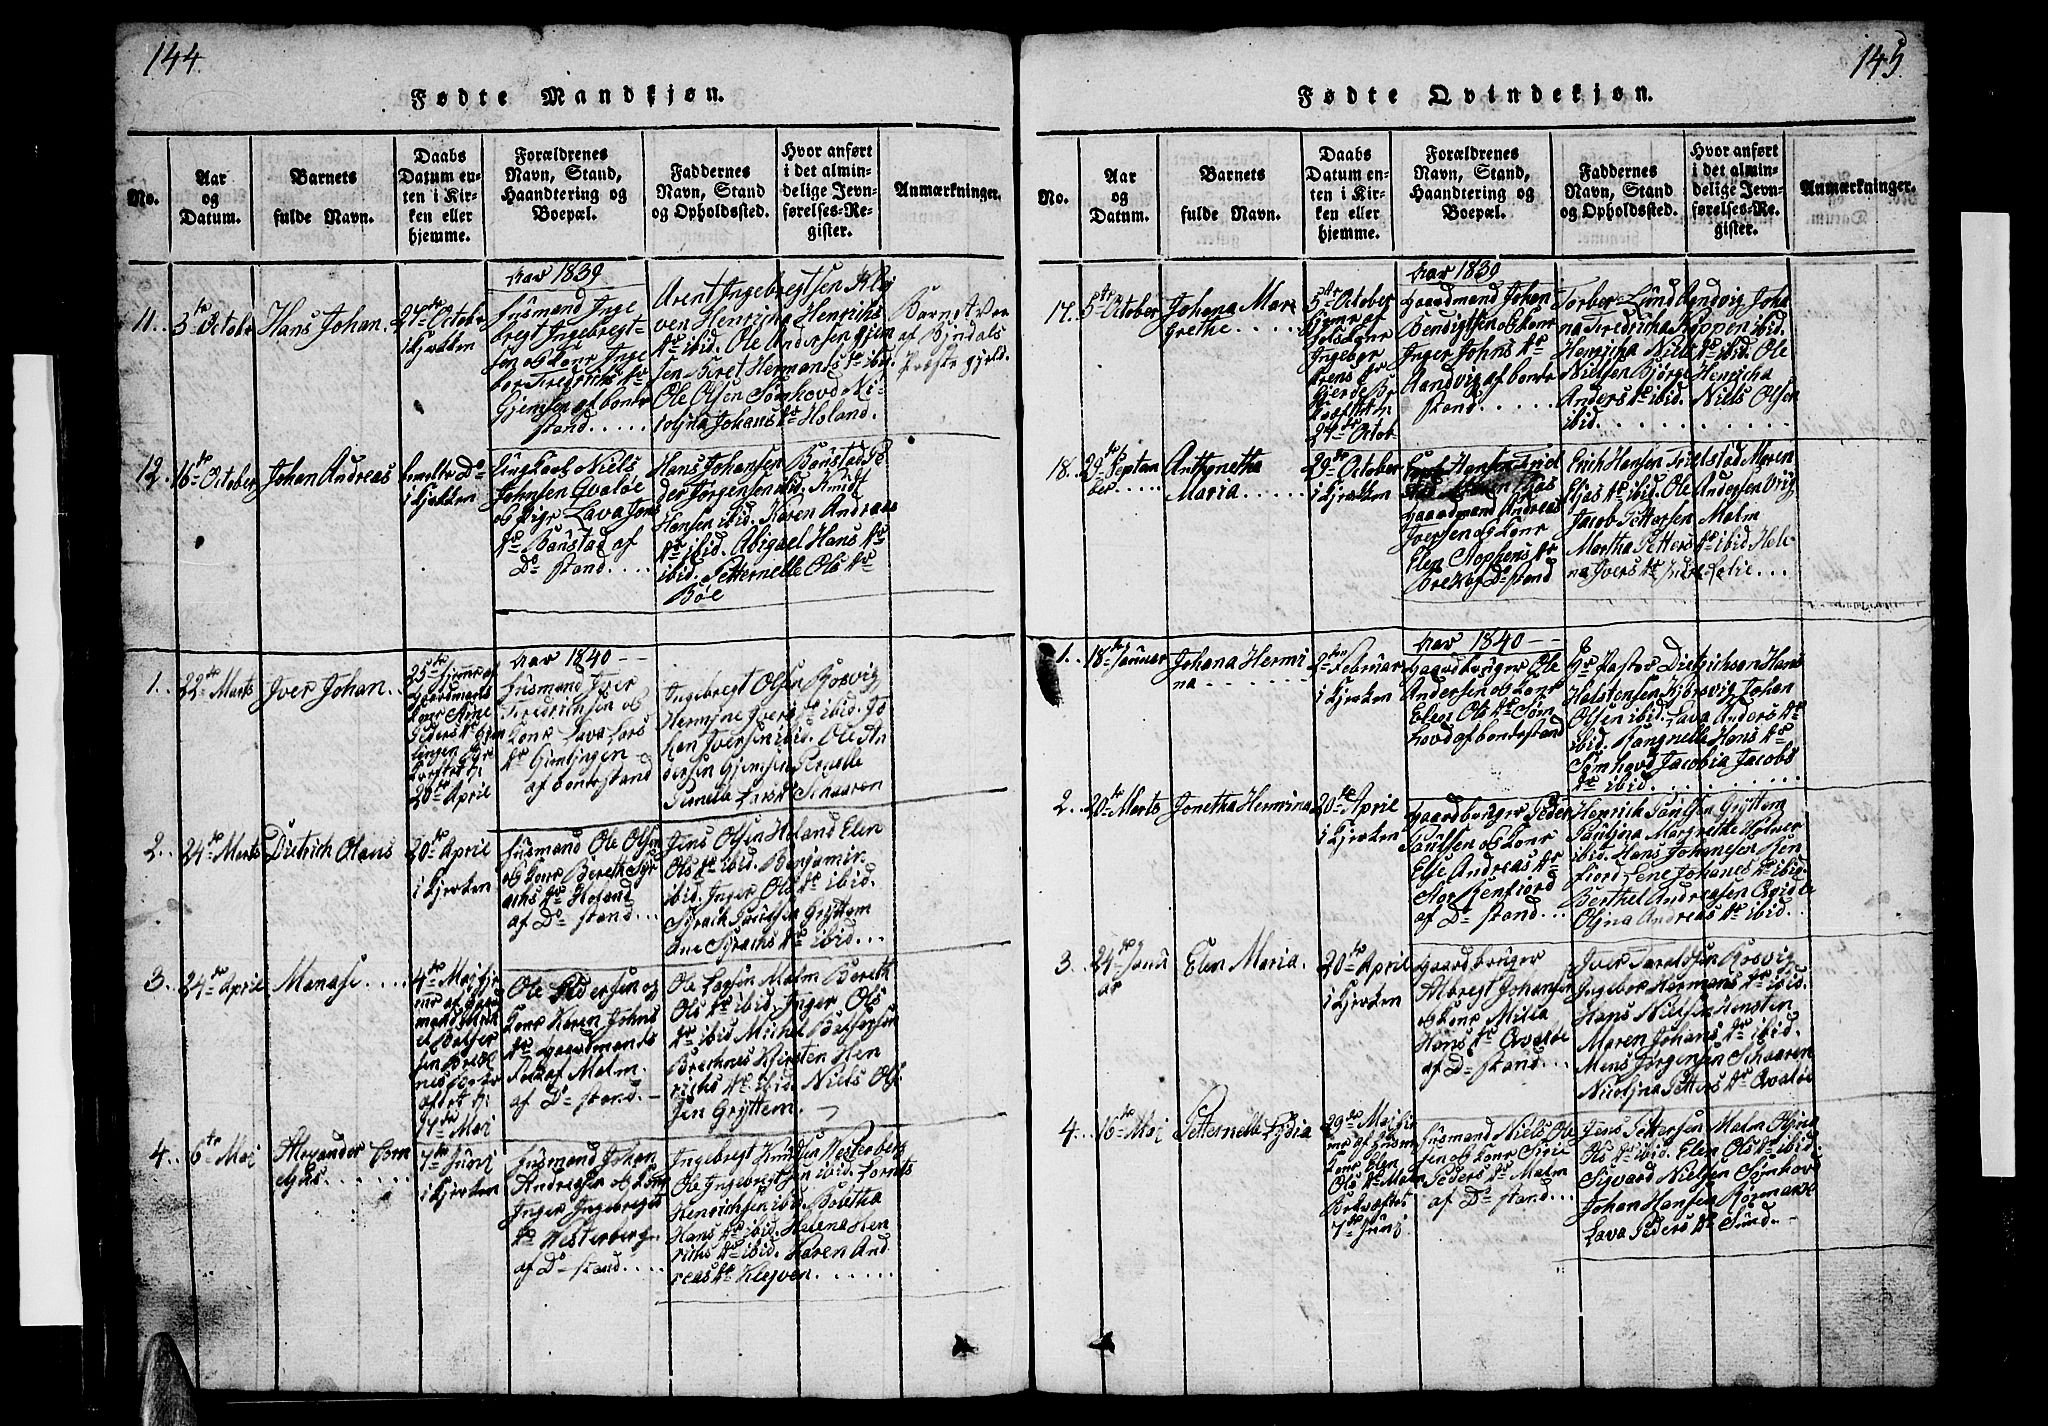 144.
Fødte Mandkjøn.
No.
Aar
og
Datum.
Barnets
fulde Navn.
Daabs
Datum en-
ten i Kir-
ken eller
hjemme.
Forældrenes
Navn, Stand,
Haandtering og
Boepæl.
Faddernes
Navn, Stand
og Opholdssted.
Hvor anført
i det almin-
delige Jevn-
førelses-Re-
gister.
Anmærkninger.
Aar 1839
11.
3de October
Hans Johan.
27de Octobr
i Kjærken
Huusmand Inge
bregt Ingebregt-
sen og Kone Inge
bor Fredriks Dr
Gjemsen af bonde
stand.....
Arent Ingebregtsen Kley
ven Henricha Henrichs
Dr ibid. Ole Andersen Gjem
sen Beret Hermans Dr ibid.
Ole Olsen Sømhovd Ni-
coljna Johans Dr Holand.
Barnet Var
af Bindals
Præstegjeld.
12.
16de October
Johan Andreas
bemelte Do
i Kjærken
Ungkarl Niels
Johnsen Qvaløe
og Pige Lava Jens
Dr Baustad af
Do stand....
Hans Johansen Baustad Pe
der Jørgensen ibid. Knudt
Hansen ibid. Karen Andreas
Dr ibid. Abigael Hans Dr
ibid. Petternelle Ols Dr
Bøe
Aar 1840
1.
22de Marts
Iver Johan..
25de Hjemme af
Gaardmands
Kone Ane
Peders Dr Gim
lingen
20de April
Huusmand Peer
Fredrichsen og
Kone Lava Lars
Dr Gimlingen
af bondestand
Ingebregt Olsen Rosvig
Hermjne Ivers Dr ibid. Jo
han Iversen ibid. Ole An
dersen Gjemsen Pernelle
Pernella Lars Dr Schaaren
2.
24de Marts
Dietrich Olaus
20de April
i Kjærken
Huusmand Ole Olsen
og Kone Bereth Syr
achs Dr Holand
af Do stand...
Jens Olsen Holand Elen
Ols Dr ibid. Benjamin
ibid. Inger Ols Dr ibid.
Syrach Paulsen Gryttem
Ane Syrachs Dr ibid...
3.
24de April
Manase.....
4de Maj Hje
me af Gaard
mand Mich
el Balser
sen Brek
nes
7de Maj
Ole Pedersen og
Kone Karen Johns
Dr Gaardmands
Malm.
af Do stand.-
Ole Larsen Malm Bereth
Ols Dr ibid. Inger Ols
Dr ibid Michel Baltsersen
Breknes Kirsten Hen
richs Dr ibid. Niels Ol-
sen Gryttem.
4.
6te Maj
Alexander Corn
elius.......
7de Junj
i Kjærken
Huusmand Johan
Andreasen og Kone
Inger Ingebregts
Dr Westerberg.
af Do stand....
Ingebregt Knudsen Westerberg
Ole Ingebregtsen ibid. Cornels
Henrichsen ibid. Beretha
Hans Dr ibid. Helena Hen
richs Dr ibid. Karen And
reas Dr Klejven.......
145.
Fødte Qvindekjøn.
No.
Aar
og
Datum.
Barnets
fulde Navn.
Daabs
Datum en-
ten i Kir-
ken eller
hjemme.
Forældrenes
Navn, Stand,
Haandtering og
Boepæl.
Faddernes
Navn, Stand
og Opholdssted.
Hvor anført
i det almin-
delige Jevn-
førelses-Re-
gister.
Anmærkninger.
Aar 1839
17.
5te October
Johana Mar
grethe.....
5te October
Hjeme af
Ingebor
Arens Dr
27de Octob
Gaardmand Johan
Bendigtsen og Kone
Inger Johns Dr
Aandvig af bonde
stand.....
Torber Lund Aandvig Joha
na Fredricha Koppen ibid.
Henrjna Niels Dr ibid. Ole
Nielsen Bjørge Henricha
Anders Dr ibid. Niels Olsen
ibid........
18.
29de Septem
ber.....
Anthonetha
Maria.....
29de October
i Kjærken
Gaardmand Andreas
Iversen og Kone
Elen Stephens Dr
Brek af Do stand
Erich Hansen Trælstad Maren
Eljas Dr ibid. Ole Andersen Vrig
Jacob Pettersen Malm
Martha Petters Dr ibid Hele
na Ivers Dr
Aar 1840
1.
18de Januar
Johana Hermi
na.......
2den Februar
i Kjærken
Gaardbruger Ole
Andersen og Kone
Elen Ols Dr Søm
hovd af bondestand
Hr Pastor Dietrichson Hans
Halstensen Kjørsvig Johan
Olsen ibid. Lava Anders Dr
ibid. Rangnelle Hans Dr
Sømhovd Jacobia Jacobs
Dr ibid......
2.
20de Marts
Jonetha Hermina
20de April
i Kjærken
Gaardbruger Peder
Paulsen og Kone
Else Andreas Dr
Stor Kenfiord
af Do stand...
Henrich Paulsen Gryttem
Pauljna Margrethe Holmer
ibid. Hans Johanesen Ken
fiord Lene Johanes Dr ibid.
Berthel Andreasen Qvidle
Oljna Andreas Dr ibid..
3.
24de Janu
ar
Elen Maria.
20de April
i Kjærken
Gaardbruger
Albregt Johansen
og Kone Milla
Hans Dr Qvaløe
af Do stand...
Iver Taraldsen Rosvig
Ingebor Hermans Dr ibid.
Hans Nielsen Hensten
Maren Johans Dr ibid.
Mons Jørgensen Schaaren
Nicoljna Petters Dr Qvaløe
4.
16de Maj
Petternelle Lydia
29de Maj Hje
me af Huusm
Kone Elen
Ols Dr Malm
7de Junj
Huusmand Niels Ole
sen og Kone Sirie
Peders Dr Malm
af Do stand...
Jens Pettersen Malm Oljna
Ols Dr ibid. Elen Ols Dr ibid.
Sivard Nielsen Sømhovd
Johan Hansen Rørmark
Lava Peders Dr Sund.-